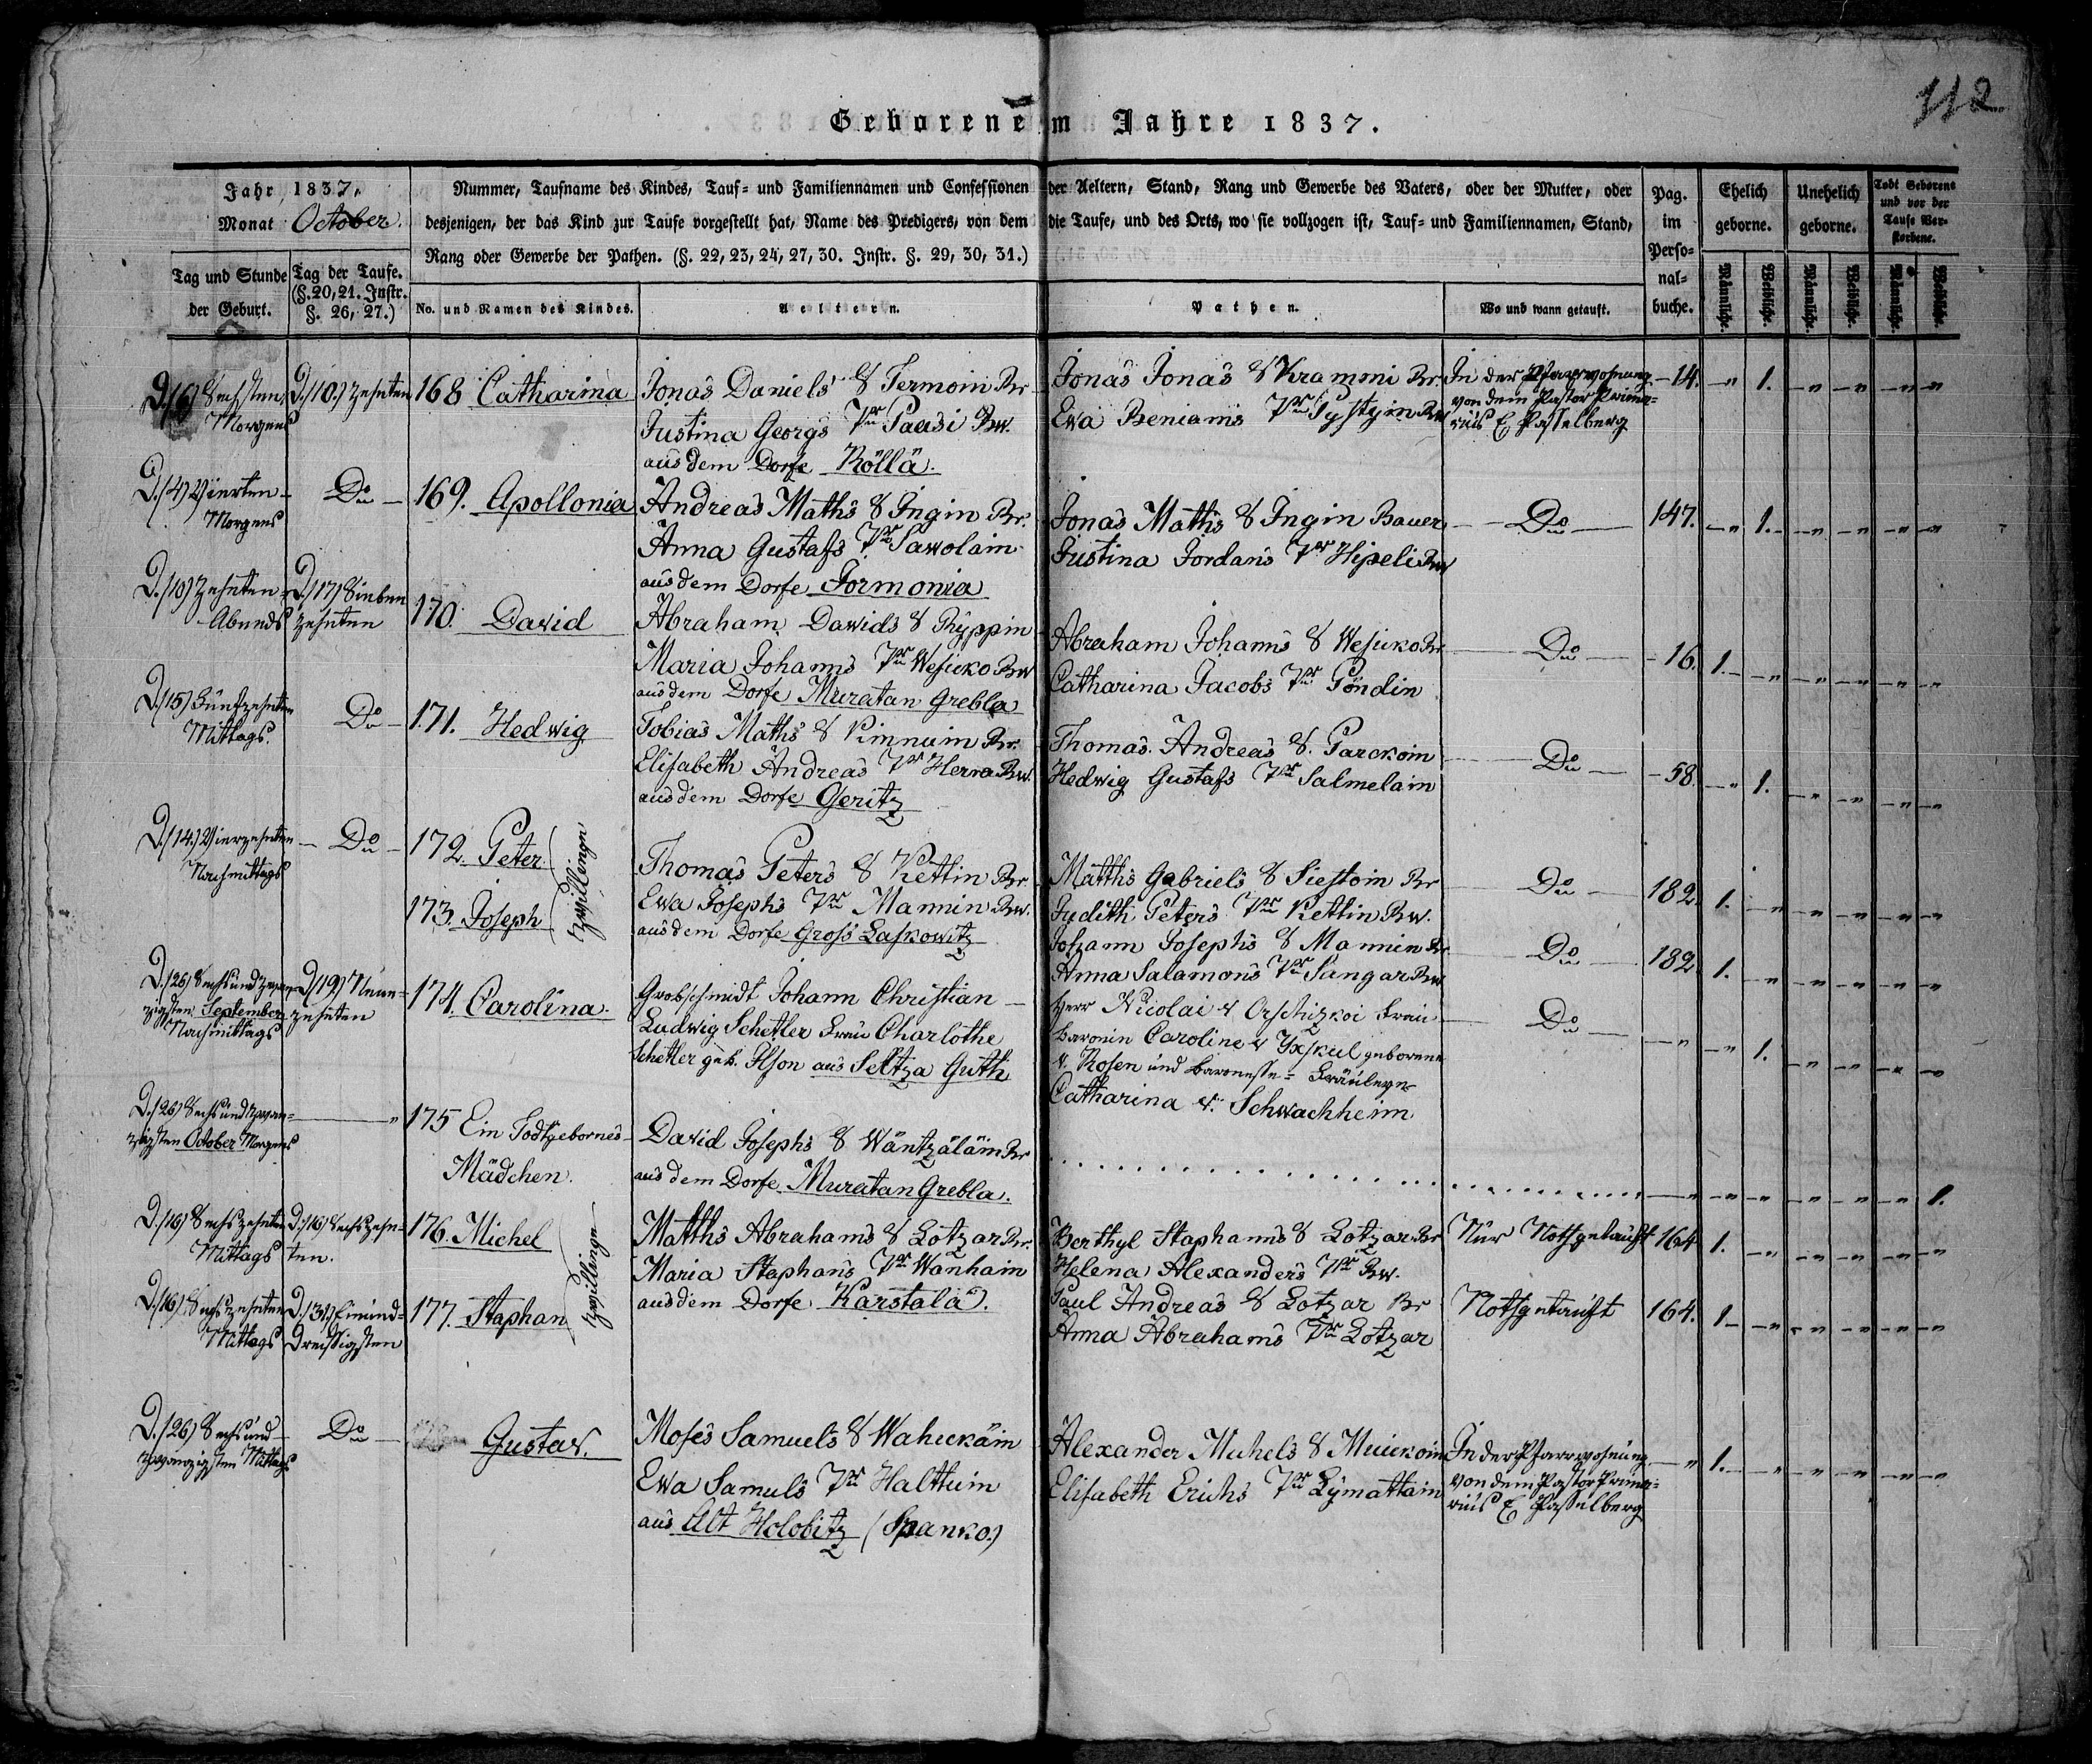 112
Geborene im Jahre 1837.
Jahr 1837.
Monat October.
Nummer, Taufname des Kindes, Tauf- und Familiennamen und Confessionen der Aeltern, Stand, Rang und Gewerbe des Vaters, oder der Mutter, oder
desjenigen, der das Kind zur Taufe vorgestellt hat, Name des Predigers, von dem die Taufe, und des Orts, wo sie vollzogen ist, Tauf- und Familiennamen, Stand,
Rang oder Gewerbe der Pathen. (§. 22, 23, 24, 27, 30. Instr. §. 29, 30, 31.)
Pag.
im
Perso-
nal-
buche.
Ehelich
geborne.
Unehelich
geborne.
Todt Geborene
und vor der
Taufe Ver-
storbene.
Tag und Stunde
der Geburt.
Tag der Taufe.
(§. 20, 21. Instr.
§. 26, 27.)
No. und Namen des Kindes.
Aeltern.
Pathen.
Wo und wann getauft.
Männliche. Weibliche. Männliche. Weibliche. Männliche. Weibliche.
D. (6) Sechsten
Morgens
D. (10.) Zehnten
168 Catharina
Jonas Daniels S Termoin Br
Justina Georgs Tr Paasi Bw.
aus dem Dorfe Röllä.
Jonas Jonas S Krammi Br.
Ewa Beniams Tr Systyin Bw
In der Pfarrwohnung
von dem Pastor Prima-
rius E Hasselberg
14. 1.
D. (4) Vierten
Morgens
Do
169. Apollonia
Andreas Maths S Ingin Br.
Anna Gustafs Tr Sawolain
aus dem Dorfe Jormonia
Jonas Maths S Ingin Bauer
Justina Jordans Tr Hipeli Bw
Do
147. 1.
D. (10) Zehnten
Abends
D. (17) Sieben
zehnten
170. David
Abraham Dawids S Ryppin
Maria Johanns Tr Wesicko Bw
aus dem Dorfe Muratan Grebla
Abraham Johanns S Wesicko Br
Catharina Jacobs Tr Pöndin
Do
16. 1.
D. (15) Fünfzehnten
Mittags.
Do
171. Hedwig
Tobias Maths S Kinnuin Br.
Elisabeth Andreas Tr Herra Bw.
aus dem Dorfe Geritz
Thomas Andreas S. Parckoin
Hedwig Gustafs Tr Salmelain
Do
58. 1.
D. (14.) Vierzehnten
Nachmittags
Do
172. Peter
173. Joseph
Zwillinge
Thomas Peters S Kettin Br
Ewa Josephs Tr Mannin Bw.
aus dem Dorfe Gross Laskowitz
Matths Gabriels S Siestoin Br
Judith Peters Tr Kettin Bw.
Do
182. 1.
Johann Josephs S Mannin Br
Anna Salamons Tr Sangar Bw
Do
182. 1.
D. (26) Sechsundzwan-
zigsten September
Nachmittags
D. (19) Neun-
zehnten
174. Carolina
Grobschmidt Johann Christian
Ludwig Schetler Frau Charlothe
Schetler geb. Ilson aus Seltza Guth
Herr Nicolai v Orschizkoi Frau
Baronin Caroline v Yxskul geborene
v. Rosen und Baronesse Fräuleyn
Catharina v. Schwachheim
Do
1.
D. (26) Sechsundzwan-
zigsten October Morgens
175 Ein Todtgebornes
Mädchen.
David Josephs S Wäntzäläin Br
aus dem Dorfe Muratan Grebla.
1.
D. (16) Sechszehnten
Mittags
D. (16) Sechszehn-
ten.
176. Michel
Zwillinge
Matths Abrahams S Lotzar Br.
Maria Staphans Tr Wanhain
aus dem Dorfe Karstala.
Berthyl Staphanns S Lotzar Br
Helena Alexanders Tr Bw.
Nur Nothgetauft
164 1.
D. (16) Sechszehnten
Mittags
D. (31) Einund-
dreissigsten
177. Staphan
Paul Andreas S Lotzar Br
Anna Abrahams Tr Lotzar
Nothgetauft
164. 1.
D. (26) Sechsund-
zwanzigsten Mittags
Do
Gustav.
Moses Samuels S Wahickäin
Ewa Samuls Tr Halttuin
aus Alt Holobitz (Spanko.)
Alexander Michels S Muickoin
Elisabeth Erichs Tr Lymattain
In der Pfarrwohnung
von dem Pastor Prima-
rius E Hasselberg
1.